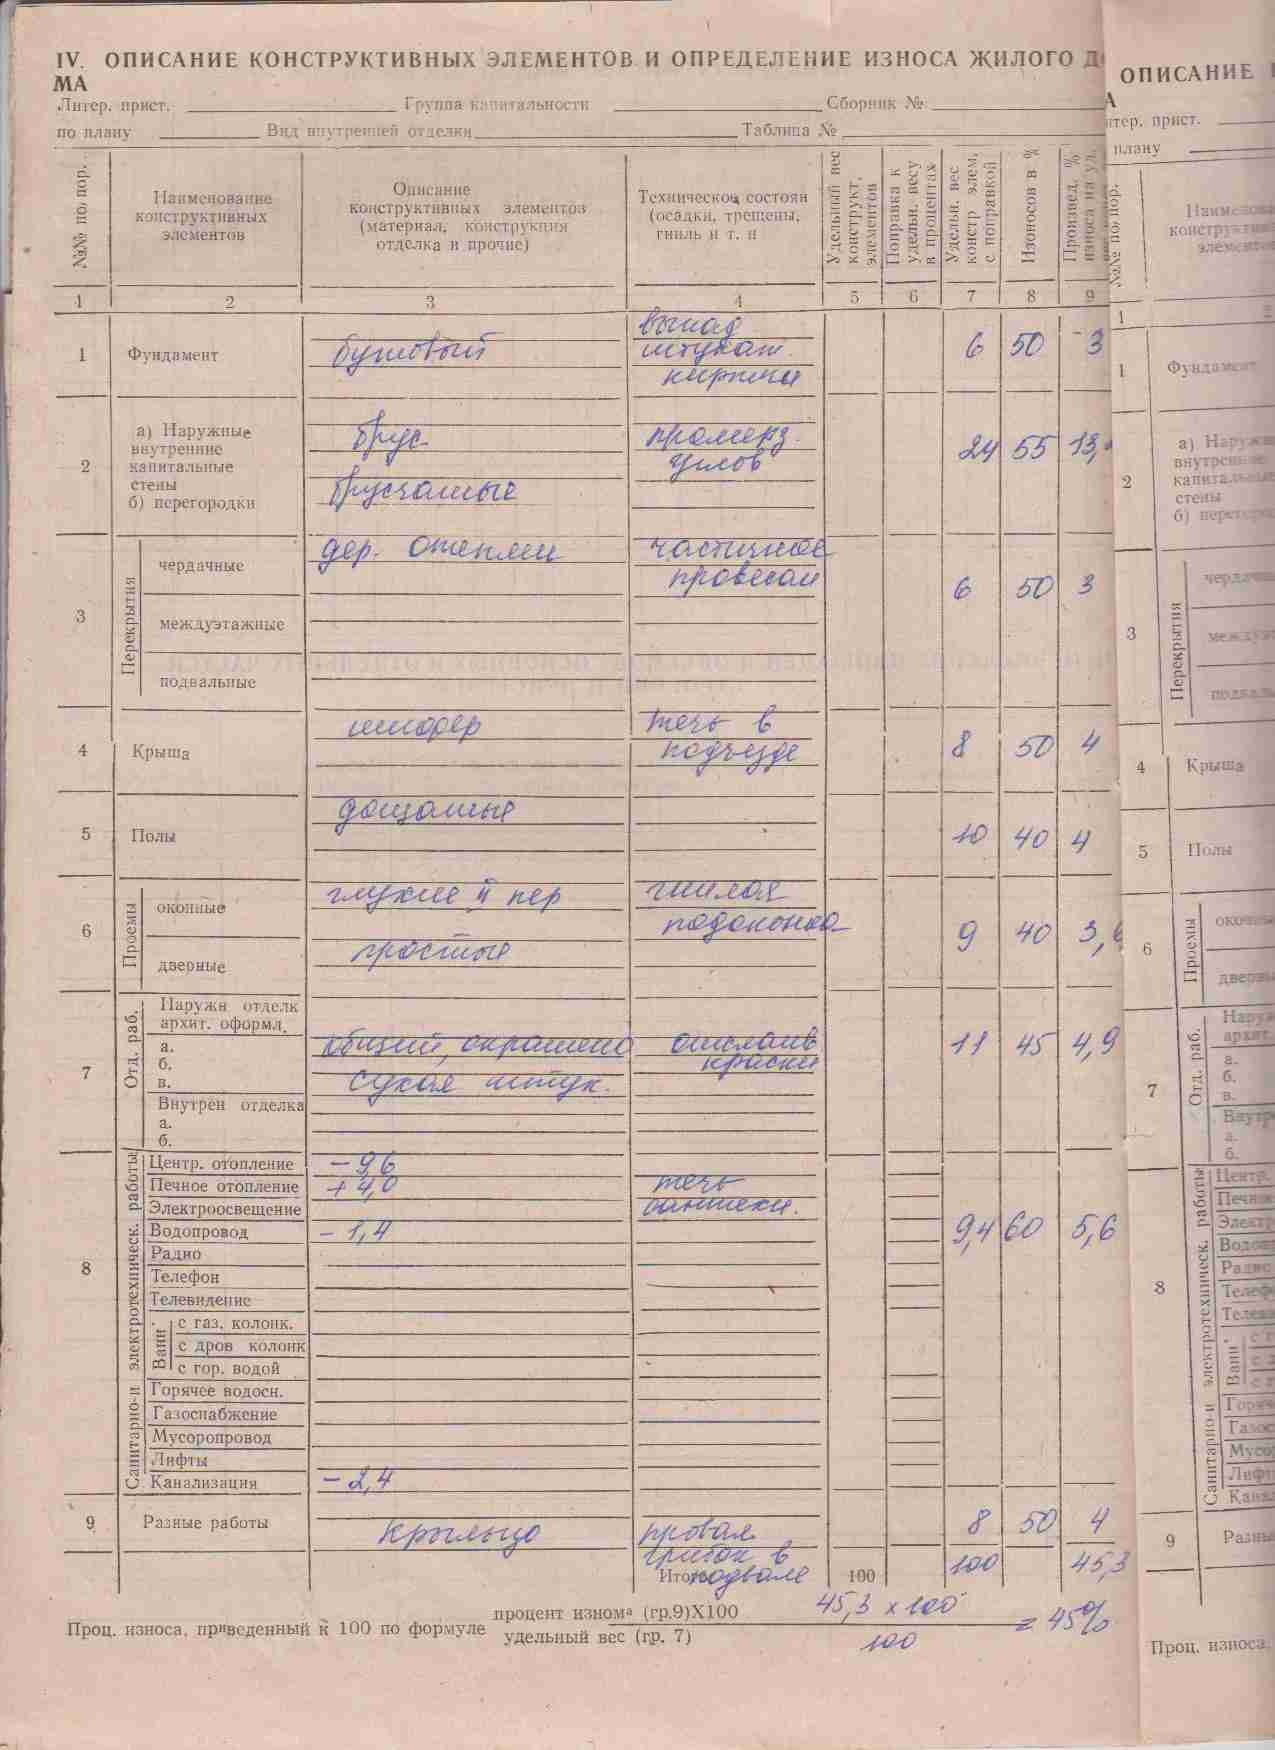 IV. ОПИСАНИЕ КОНСТРУКТИВНЫХ ЭЛЕМЕНТОВ И ОПРЕДЕЛЕНИЕ ИЗНОСА ЖИЛОГО Д
МА
Литер. прист. Группа капитальности Сборник №
по плану Вид внутренней отделки Таблица №
№№ по пор.
Наименование
конструктивных
элементов
Описание
конструктивных элементов
(материал, конструкция
отделка и прочие)
Техническое состоян
(осадки, трещены,
гниль и т. п
Удельный вес
конструкт,
элементов
Поправка к
удельн. весу
в процентах
Удельн. вес
констр элем,
с поправкой
Изоносов в %
Произвед, %
износа на уд.
1 2 3 4 5 6 7 8 9
1 Фундамент бутовый выпад штукат. кирпича 6 50 3
2 а) Наружные
внутренние
капитальные
стены
б) перегородки
брус
брусчатые
промерз.
углов
24 55 13,
3 Перекрытия
чердачные дер. отепли частичное
провесан 6 50 3
междуэтажные
подвальные
4 Крыша шифер течь в
подъезде 8 50 4
5 Полы дощатые 10 40 4
6 Проемы
оконные глухие II пер гнилая
подоконна 9 40 3,6
дверные простые
7 Отд. раб.
Наружн отделк
архит. оформл.
а.
б.
в.
обший, окрашено отслаив
краски 11 45 4,9
сухая штук.
Внутрен отделка
а.
б.
8 Санитарно-и электротехническ. работы
Центр. отопление – 9,6
Печное отопление + 4,0 течь
Электроосвещение сантехн.
Водопровод – 1,4 9,4 60 5,6
Радио
Телефон
Телевидение
Ванн.
с газ, колонк.
с дров колонк
с гор. водой
Горячее водосн.
Газоснабжение
Мусоропровод
Лифты
Канализация – 2,4
9 Разные работы крыльцо провал 8 50 4
грибок в
подвале
Итого 100 100 45,3
Проц. износа, приведенный к 100 по формуле
процент изнома (гр.9)X100
удельный вес (гр. 7)
45,3 x 100
100
= 45%
ОПИСАНИЕ
А
итер. прист.
плану
№№ по пор.
Наименова
конструктив
элементо
1 2
1 Фундамент
2 а) Наружн
внутренние
капитальные
стены
б) перегород
3 Перекрытия
чердачн
междуэт
подваль
4 Крыша
5 Полы
6 Проемы
оконны
дверны
7 Отд. раб.
Наруж
архит.
а.
б.
в.
Внутре
а.
б.
8 Санитарно-и электротехническ. работы
Центр.
Печное
Электр
Водопр
Радио
Телеф
Телев
Ванн.
с г
с д
с г
Горяч
Газос
Мусор
Лифт
Канал
9 Разны
Проц. износа.